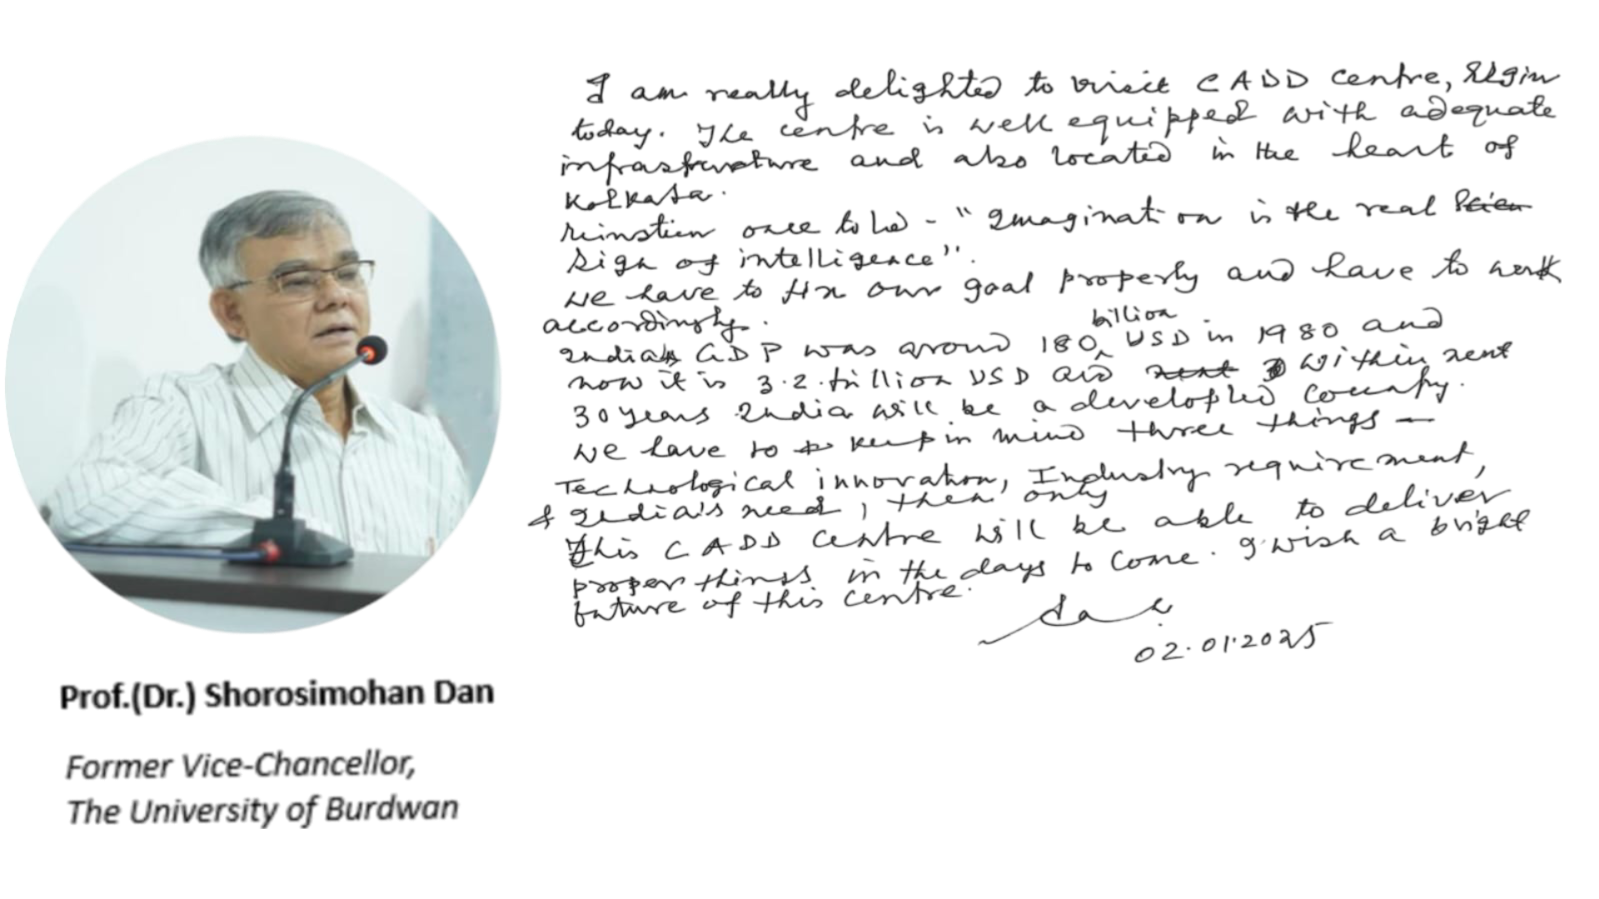 I am really delighted to visit CADD centre, Elgin
today. The centre is well equipped with adequate
infrastructure and also located in the heart of
Kolkata.
Einstien once told - "Imagination is the real
Sign of intelligence".
We have to fix our goal properly and have to work
accordingly.
India's GDP was around 180 billion USD in 1980 and
now it is 3.2 trillion USD and within next
30 years India will be a developed Country.
We have to keep in mind three things —
Technological innovation, Industry requirement,
& India's need, then only
this CADD centre will be able to deliver
proper things in the days to come. I wish a bright
future of this centre.
02.01.2025
Prof.(Dr.) Shorosimohan Dan
Former Vice-Chancellor,
The University of Burdwan